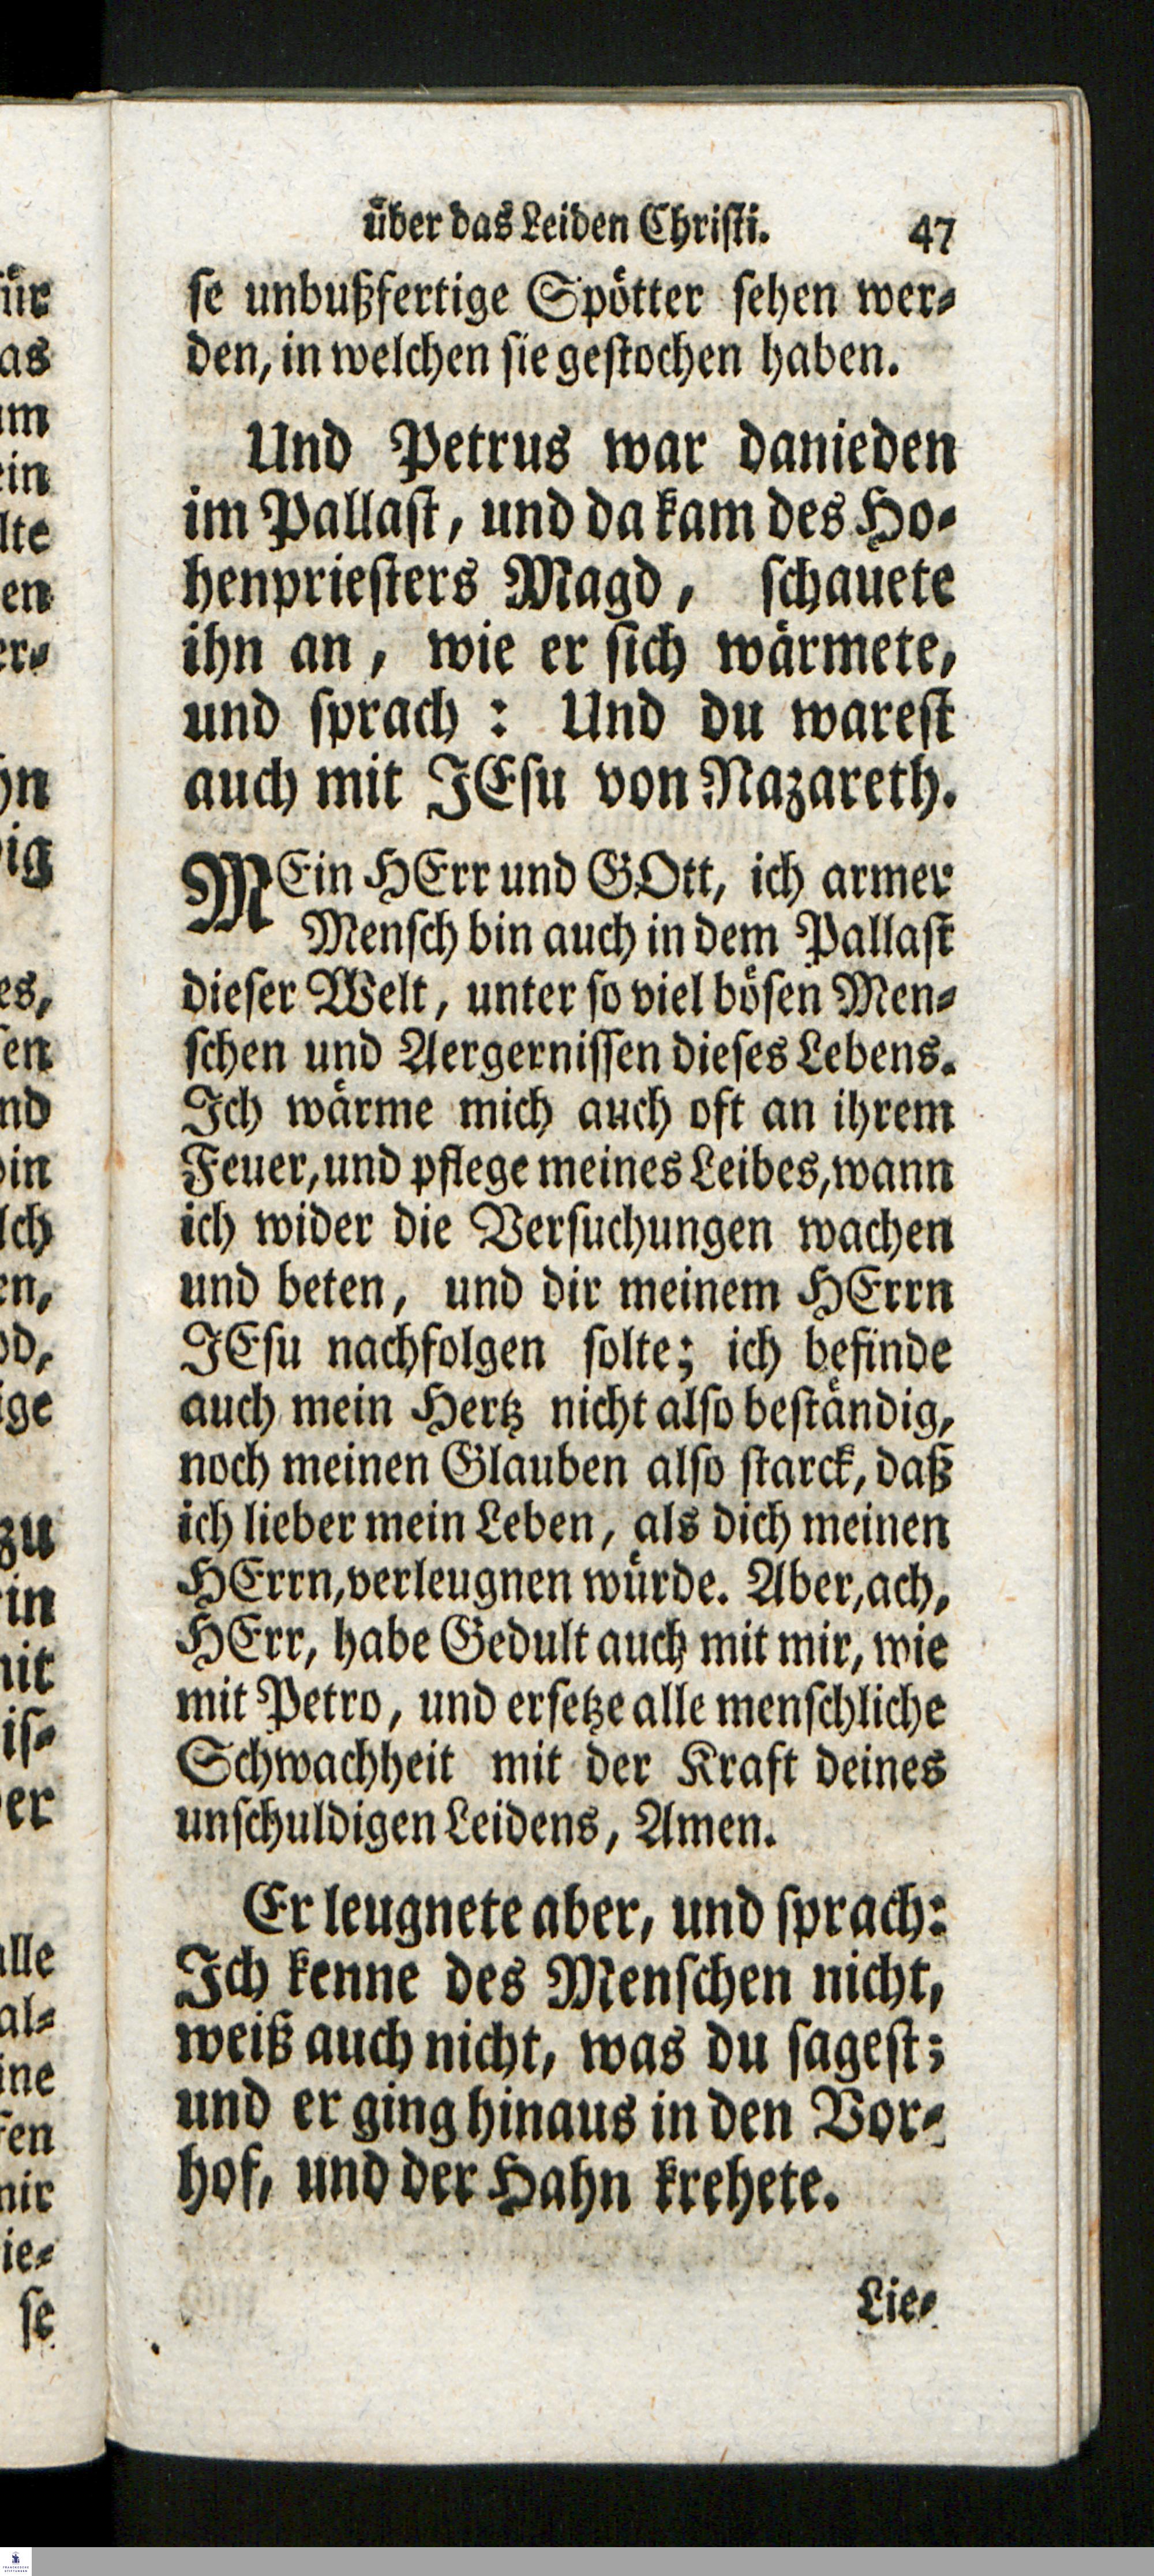 über das Leiden Christi. 47
se unbußfertige Spötter sehen wer-
den, in welchen sie gestochen haben.
Und Petrus war danieden
im Pallast, und da kam des Ho-
henpriesters Magd, schauete
ihn an, wie er sich wärmete,
und sprach: Und du warest
auch mit JEsu von Nazareth.
MEin HErr und GOtt, ich armer
Mensch bin auch in dem Pallast
dieser Welt, unter so viel bösen Men-
schen und Aergernissen dieses Lebens.
Ich wärme mich auch oft an ihrem
Feuer, und pflege meines Leibes, wann
ich wider die Versuchungen wachen
und beten, und dir meinem HErrn
JEsu nachfolgen solte; ich befinde
auch mein Hertz nicht also beständig,
noch meinen Glauben also starck, daß
ich lieber mein Leben, als dich meinen
HErrn, verleugnen würde. Aber, ach,
HErr, habe Gedult auch mit mir, wie
mit Petro, und ersetze alle menschliche
Schwachheit mit der Kraft deines
unschuldigen Leidens, Amen.
Er leugnete aber, und sprach:
Ich kenne des Menschen nicht,
weiß auch nicht, was du sagest;
und er ging hinaus in den Vor-
hof, und der Hahn krehete.
Lie-